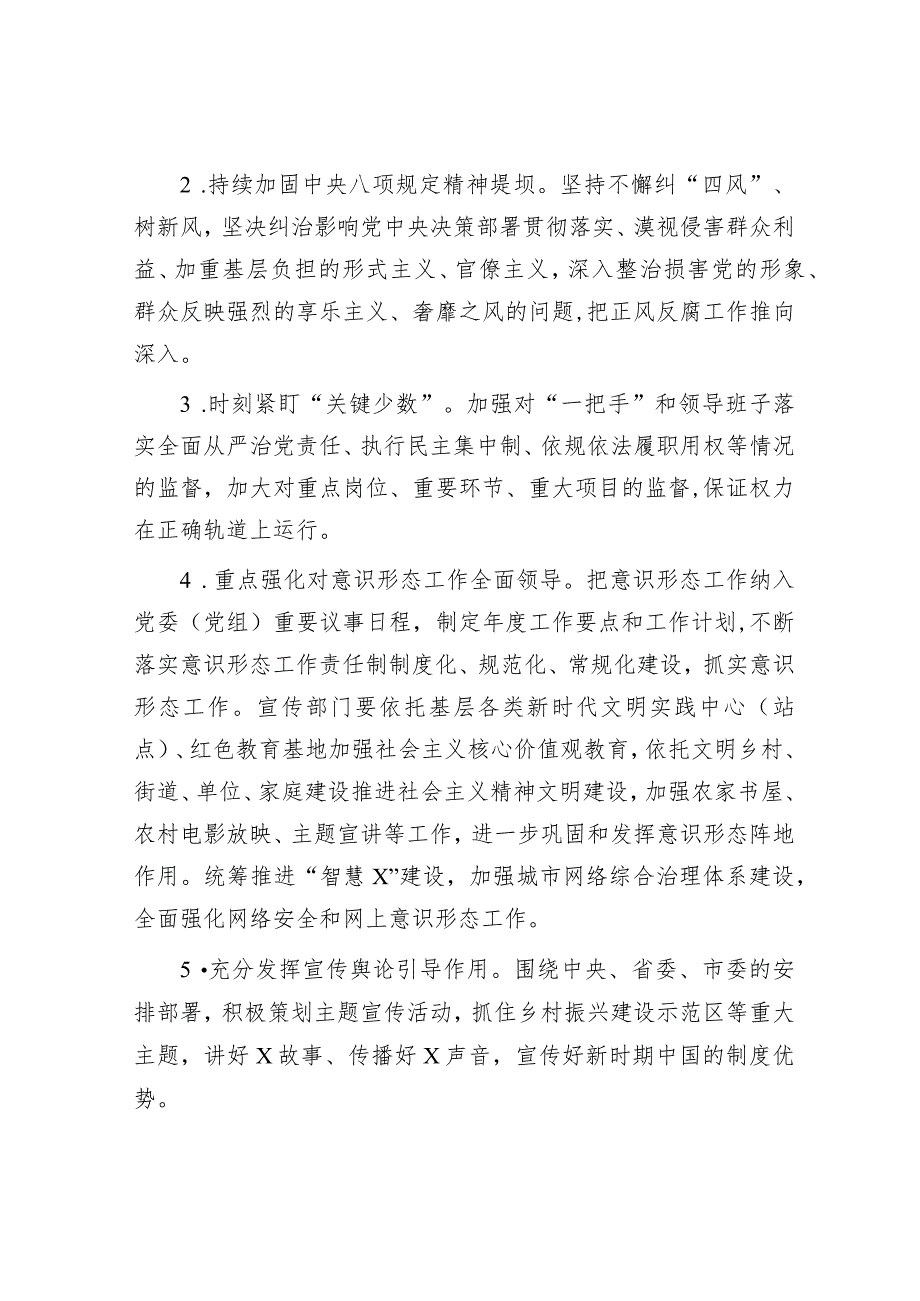 2 .持续加固中央八项规定精神堤坝。坚持不懈纠“四风”、
树新风，坚决纠治影响党中央决策部署贯彻落实、漠视侵害群众利
益、加重基层负担的形式主义、官僚主义，深入整治损害党的形象、
群众反映强烈的享乐主义、奢靡之风的问题,把正风反腐工作推向
深入。
3 .时刻紧盯“关键少数”。加强对“一把手”和领导班子落
实全面从严治党责任、执行民主集中制、依规依法履职用权等情况
的监督，加大对重点岗位、重要环节、重大项目的监督,保证权力
在正确轨道上运行。
4 .重点强化对意识形态工作全面领导。把意识形态工作纳入
党委（党组）重要议事日程，制定年度工作要点和工作计划,不断
落实意识形态工作责任制制度化、规范化、常规化建设，抓实意识
形态工作。宣传部门要依托基层各类新时代文明实践中心（站
点）、红色教育基地加强社会主义核心价值观教育，依托文明乡村、
街道、单位、家庭建设推进社会主义精神文明建设，加强农家书屋、
农村电影放映、主题宣讲等工作，进一步巩固和发挥意识形态阵地
作用。统筹推进“智慧X”建设，加强城市网络综合治理体系建设，
全面强化网络安全和网上意识形态工作。
5 •充分发挥宣传舆论引导作用。围绕中央、省委、市委的安
排部署，积极策划主题宣传活动，抓住乡村振兴建设示范区等重大
主题，讲好X故事、传播好X声音，宣传好新时期中国的制度优
势。